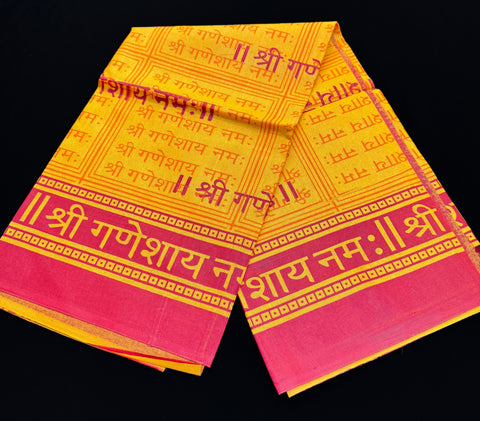 ॥ श्री गणे
श्री गणेशाय नमः
श्री गणेशाय नमः
शाय नमः॥
श्री गणेशाय नमः
श्री गणेशाय नमः
श्री गणेशाय नमः
॥ श्री गणे॥
॥ श्री गणेशाय नमः
शाय नमः॥ श्री